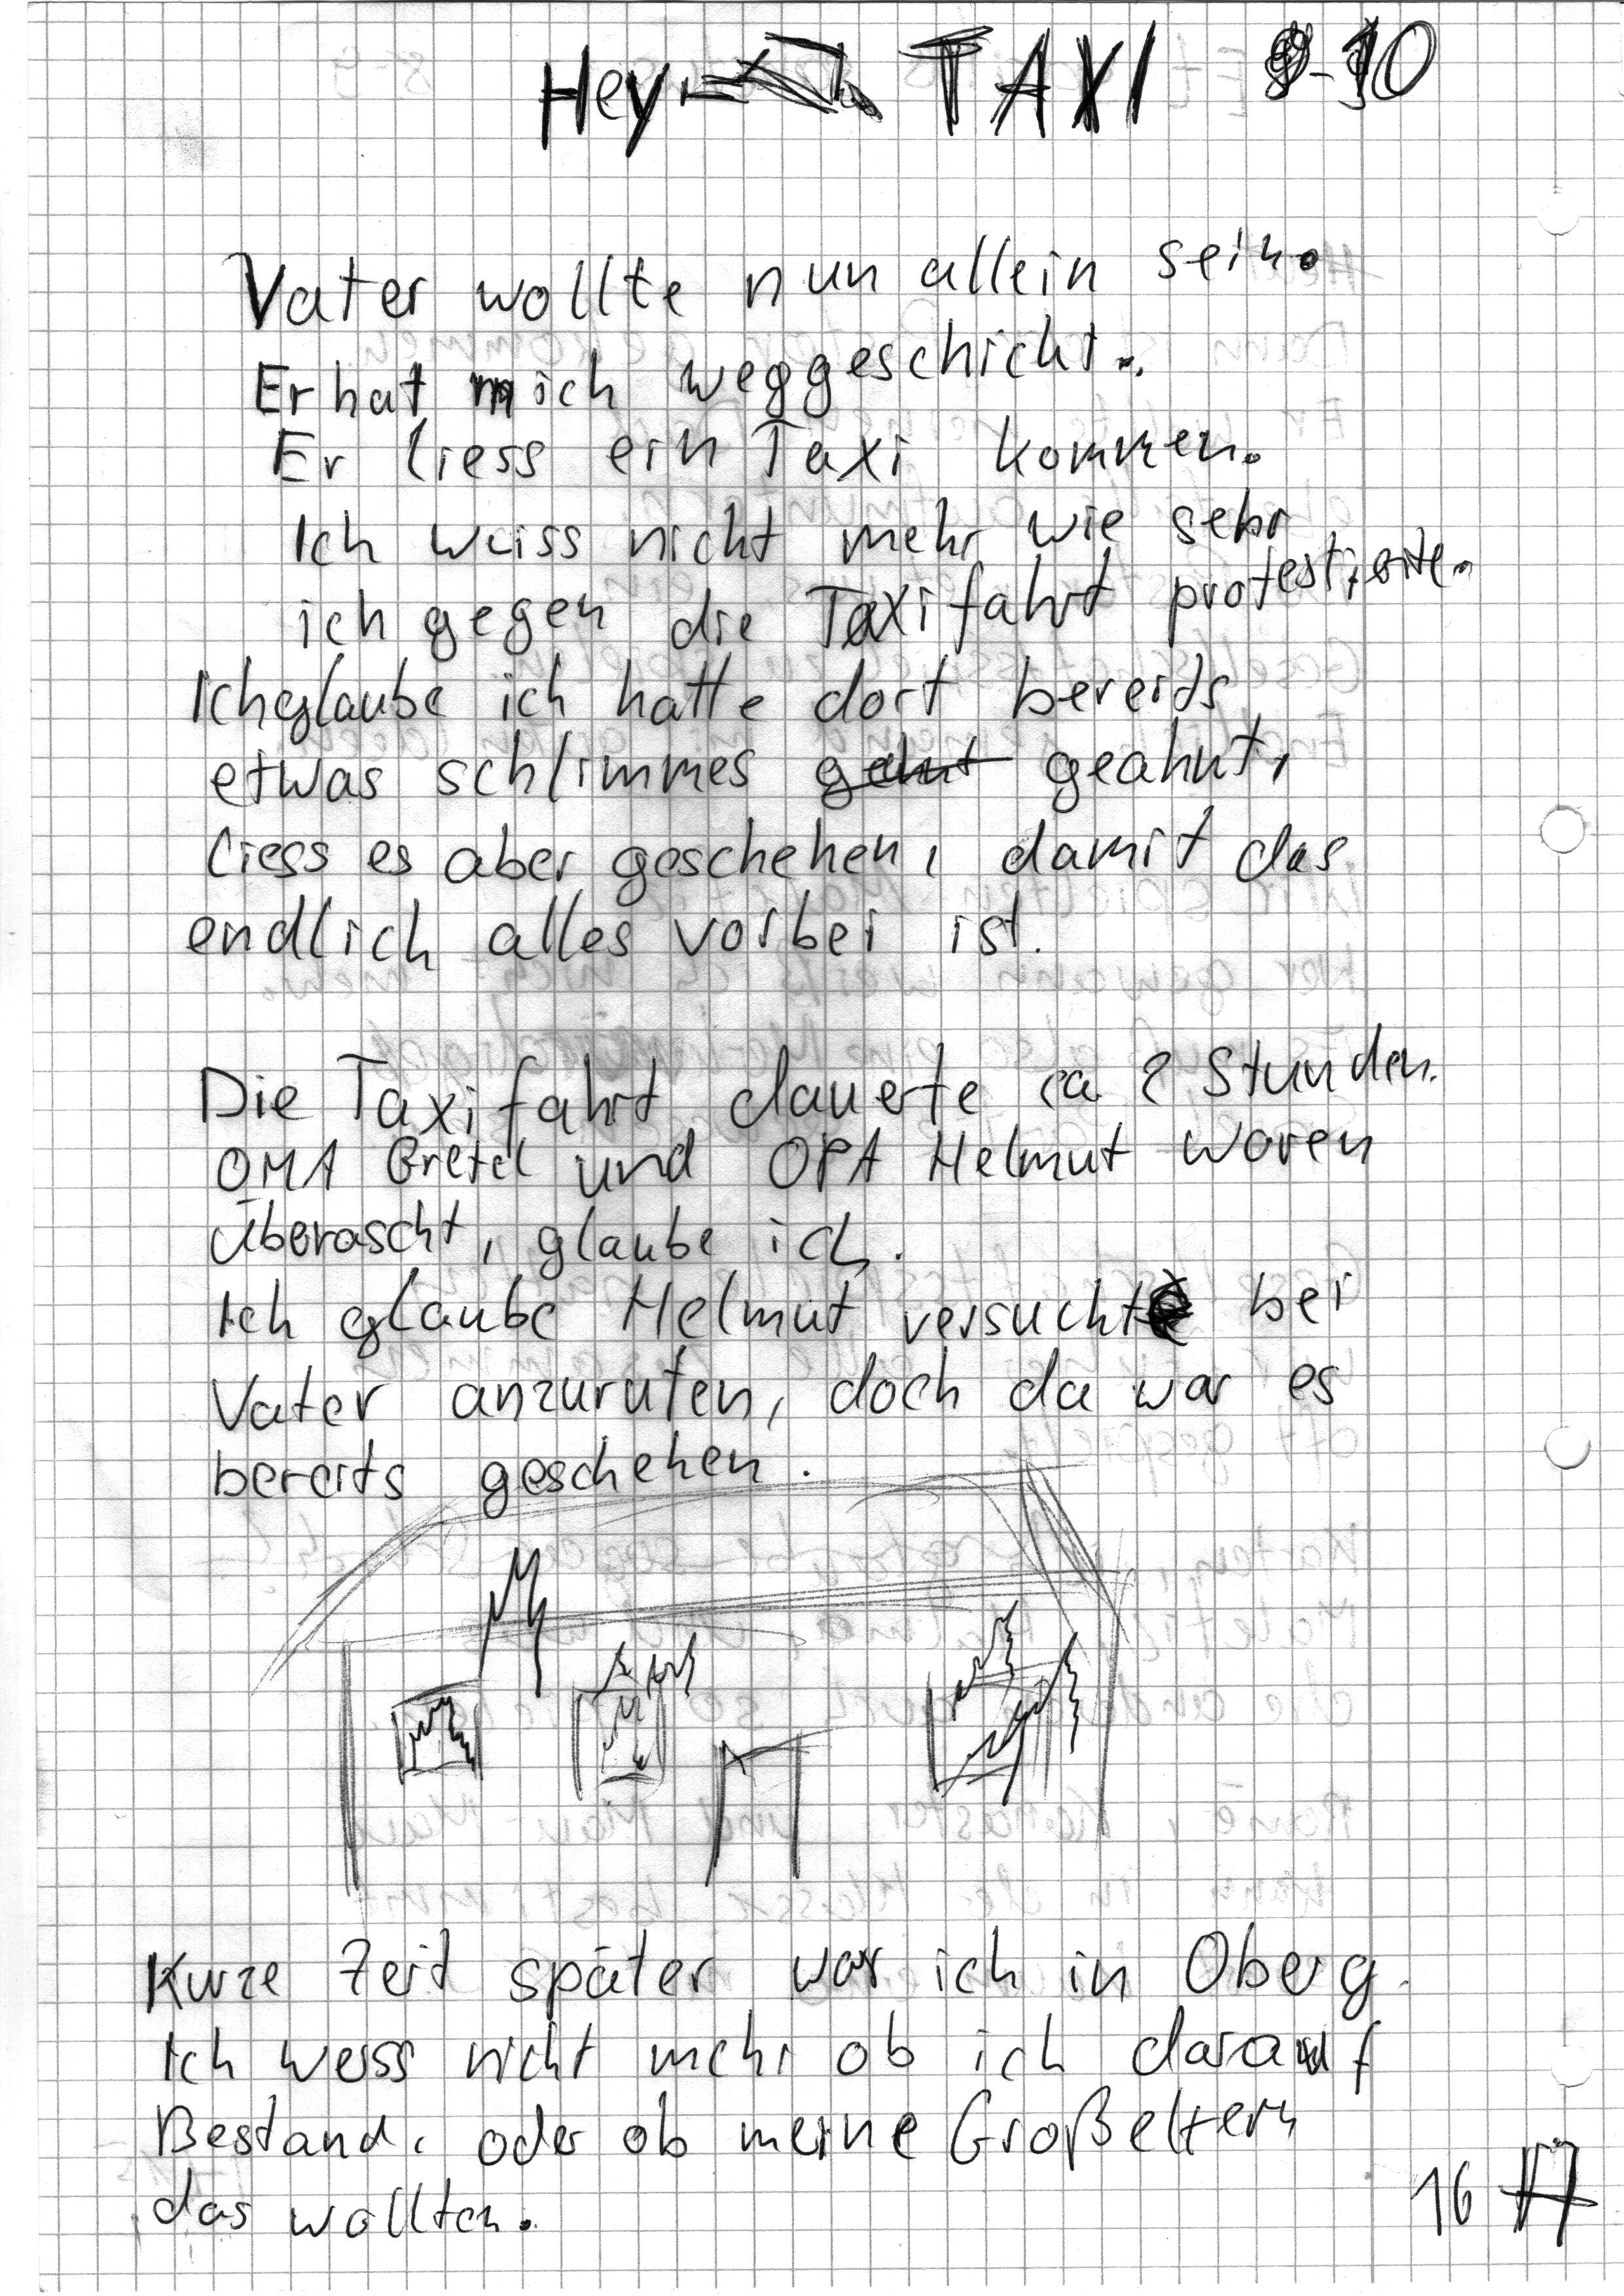 Hey TAXI 9-10
Vater wollte nun allein sein.
Er hat mich weggeschickt.
Er liess ein Taxi kommen.
Ich weiss nicht mehr wie sehr
ich gegen die Taxifahrt protestierte.
Ich glaube ich hatte dort bereits
etwas schlimmes geahnt,
liess es aber geschehen, damit das
endlich alles vorbei ist.
Die Taxifahrt dauerte ca 2 Stunden.
OMA Gretel und OPA Helmut waren
Überascht, glaube ich.
Ich glaube Helmut versuchte bei
Vater anzurufen, doch da war es
bereits geschehen.
Kurze Zeit später war ich in Oberg.
Ich weiss nicht mehr ob ich darauf
Bestand, oder ob meine Großeltern
das wollten.
16